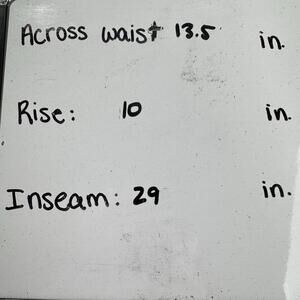 Across waist 13.5 in.
Rise: 10 in.
Inseam: 29 in.